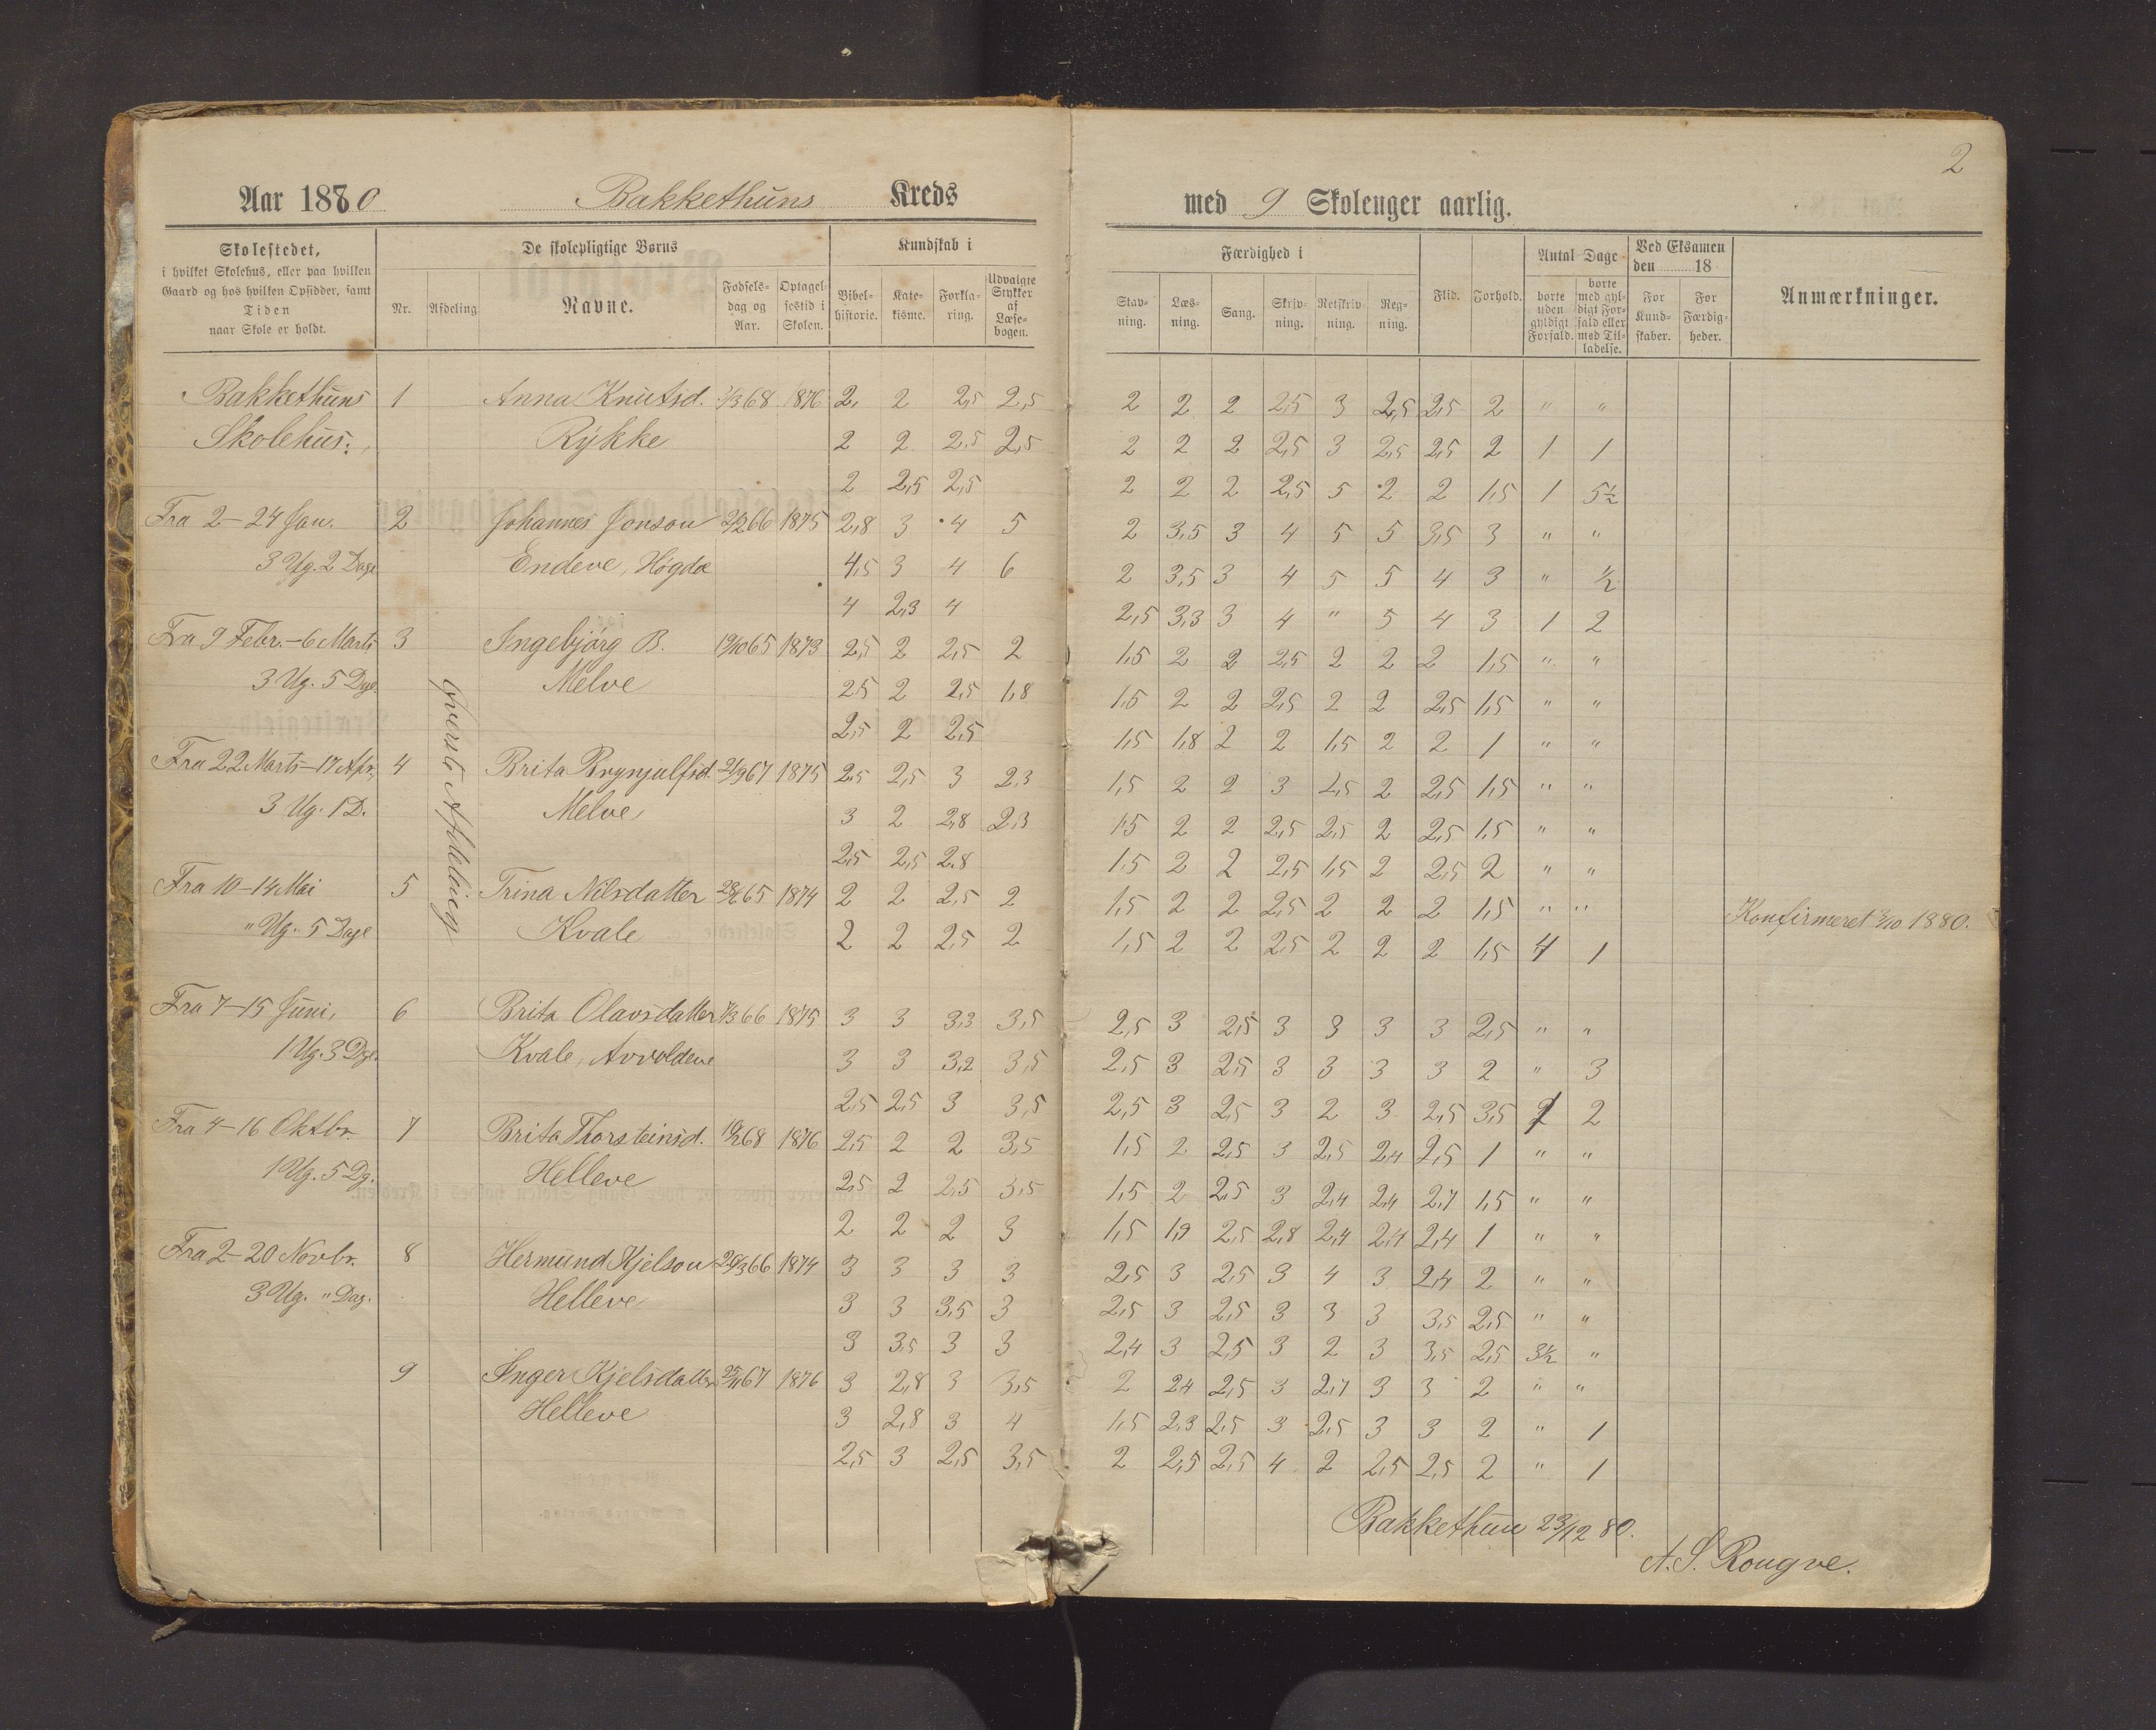 2
Aar 1880 Bakkethuns Kreds med 9 Skoleuger aarlig.
Skolestedet, i hvilket Skolehus, eller paa hvilken Gaard og hos hvilken Opsidder, samt Tiden naar Skole er holdt.
De skolepligtige Børns
Nr. Afdeling Navne. Fødselsdag og Aar. Optagelsestid i Skolen.
Kundskab i
Bibelhistorie. Katekisme. Forklaring. Udvalgte Stykker af Læsebogen.
Færdighed i
Stavning. Læsning. Sang. Skrivning. Retskrivning. Regning. Flid. Forhold.
Antal Dage
borte uden gyldigt Forfald. borte med gyldigt Forfald eller med Tilladelse.
Ved Eksamen den 18
For Kundskaber. For Færdigheder.
Anmærkninger.
Øverste Afdeling
Bakkethuns 1 Anna Knutsd. 68 1876 2, 2 2,5 2,5 2 2 2 2,5 3 2,5 2,5 2 " "
Skolehus. Rykke 2 2 2,5 2,5 2 2 2 2,5 3 2,5 2,5 2 1 1
2 2,5 2,5 2 2 2 2,5 5 2 2 1,5 1 5½
Fra 2-24 Jan. 2 Johannes Jonson 66 1875 2,8 3 4 5 2 3,5 3 4 5 5 3,5 3 " "
3 Ug. 2 Dage Endeve, Høgda 4,5 3 4 6 2 3,5 3 4 5 5 4 3 " ½
4 2,3 4 2,5 3,3 3 4 " 5 4 3 1 2
Fra 9 Febr.-6 Marts 3 Ingebjörg B. 19/10 65 1873 2,5 2 2,5 2 1,5 2 2 2,5 2 2 2 1,5 " "
3 Ug. 5 Dge. Melve 2,5 2 2,5 1,8 1,5 2 2 2,5 2 2 2,5 1,5 " "
2,5 2 2,5 1,5 1,8 2 2 1,5 2 2 1 " "
Fra 22 Marts-17 Apr. 4 Brita Brynjulfsd. 21/9 67 1875 2,5 2,5 3 2,3 1,5 2 2 3 2,5 2 2,5 1,5 " "
3 Ug. 1 D. Melve 3 2 2,8 2,3 1,5 2 2 2,5 2,5 2 2,5 1,5 " "
2,5 2,5 2,8 1,5 2 2 2,5 1,5 2 2,5 2 " "
Fra 10-14 Mai 5 Trina Nilsdatter 65 1874 2 2 2,5 2 1,5 2 2 2,5 2 2 2 1,5 " " Konfirmeret 1880.
" Ug. 5 Dage Kvale 2 2 2,5 2 1,5 2 2 2,5 2 2 2 1,5 4 1
Fra 7-15 Juni, 6 Brita Olavsdatter 66 1875 3 3 3,3 3,5 2,5 3 2,5 3 3 3 3 2,5 " "
1 Ug. 3 Dge. Kvale, 3 3 3,2 3,5 2,5 3 2,5 3 3 3 3 2 " 3
2,5 2,5 3 3,5 2,5 3 2,5 3 2 3 2,5 3,5 2
Fra 4-16 Oktbr. 7 Brita Thorsteinsd. 68 1876 2,5 2 2 3,5 1,5 2 2,5 3 2,5 2,4 2,5 1 " "
1 Ug. 5 Dg. Helleve 2,5 2 2,5 3,5 1,5 2 2,5 3 2,4 2,4 2,7 1,5 " "
2 2 2 3 1,5 1,9 2,5 2,8 2,4 2,4 2,4 1 " "
Fra 2-20 Novbr. 8 Hermund Kjelson 26/3 66 1874 3 3 3 3 2,5 3 2,5 3 4 3 2,4 2 " "
3 Ug. " Dag. Helleve 3 3 3,5 3 2,5 3 2,5 3 3 3 3,5 2,5 " "
3 3,5 3 3 2,4 3 2,5 3 2 3 3,5 2,5 3½ "
9 Inger Kjelsdatter 25/11 67 1876 3 2,8 3 3,5 2 2,4 2,5 3 2,7 3 3 2 " "
Helleve 3 2,8 3 4 1,5 2,3 2,5 3 2,5 3 3 2 " 1
2,5 3 2,5 3,5 2 2,5 2,5 4 2 2,5 2,5 2 " 1
Bakkethun 23/12 80.
A. S. Rougve.